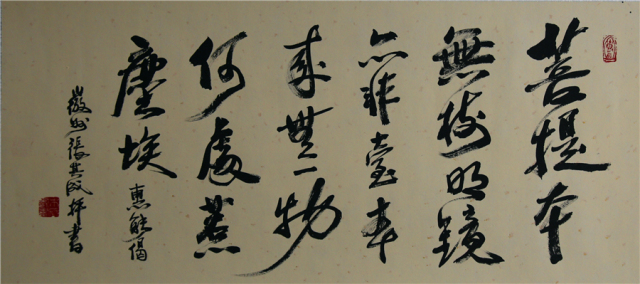 菩提本
無樹明鏡
亦非臺本
來無一物
何處惹
塵埃
惠能偈
徽州張其成拜書